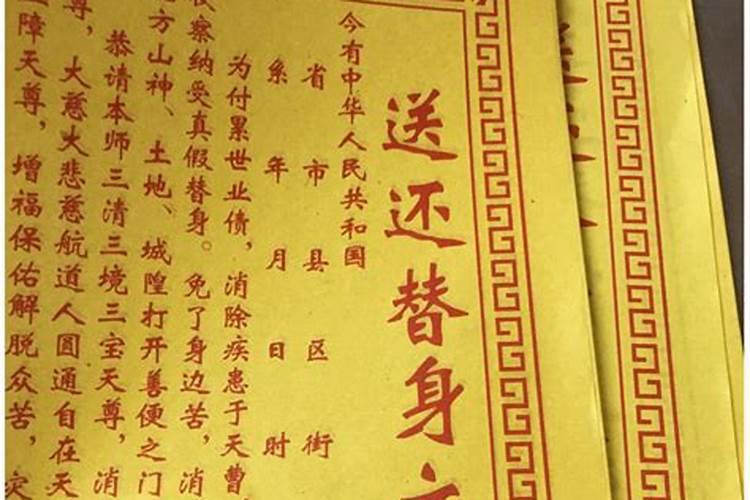 送还替身文
今有中华人民共和国
省市县区街
系年月日时
为付累世业债，消除疾患于天曹
收察纳受真假替身。免了身边苦，消
方山神、土地、城隍打开善便之门
恭请本师三清三境三宝天尊，消
尊，大慈大悲慈航道人圆通自在天
障天尊，增福保佑解脱众苦，灾